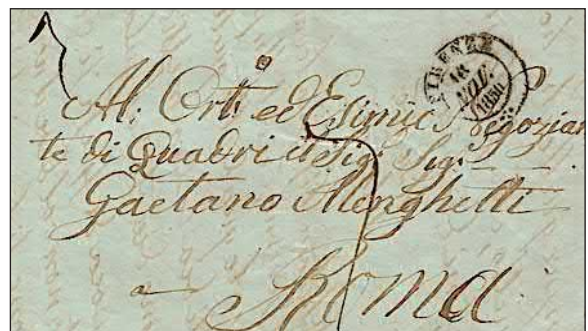 FIRENZE
18
NOV.
1850
Al: Ort: ed Esimio Negozian
te di Quadri il Sig: Sig:
Gaetano Menghetti
a Roma